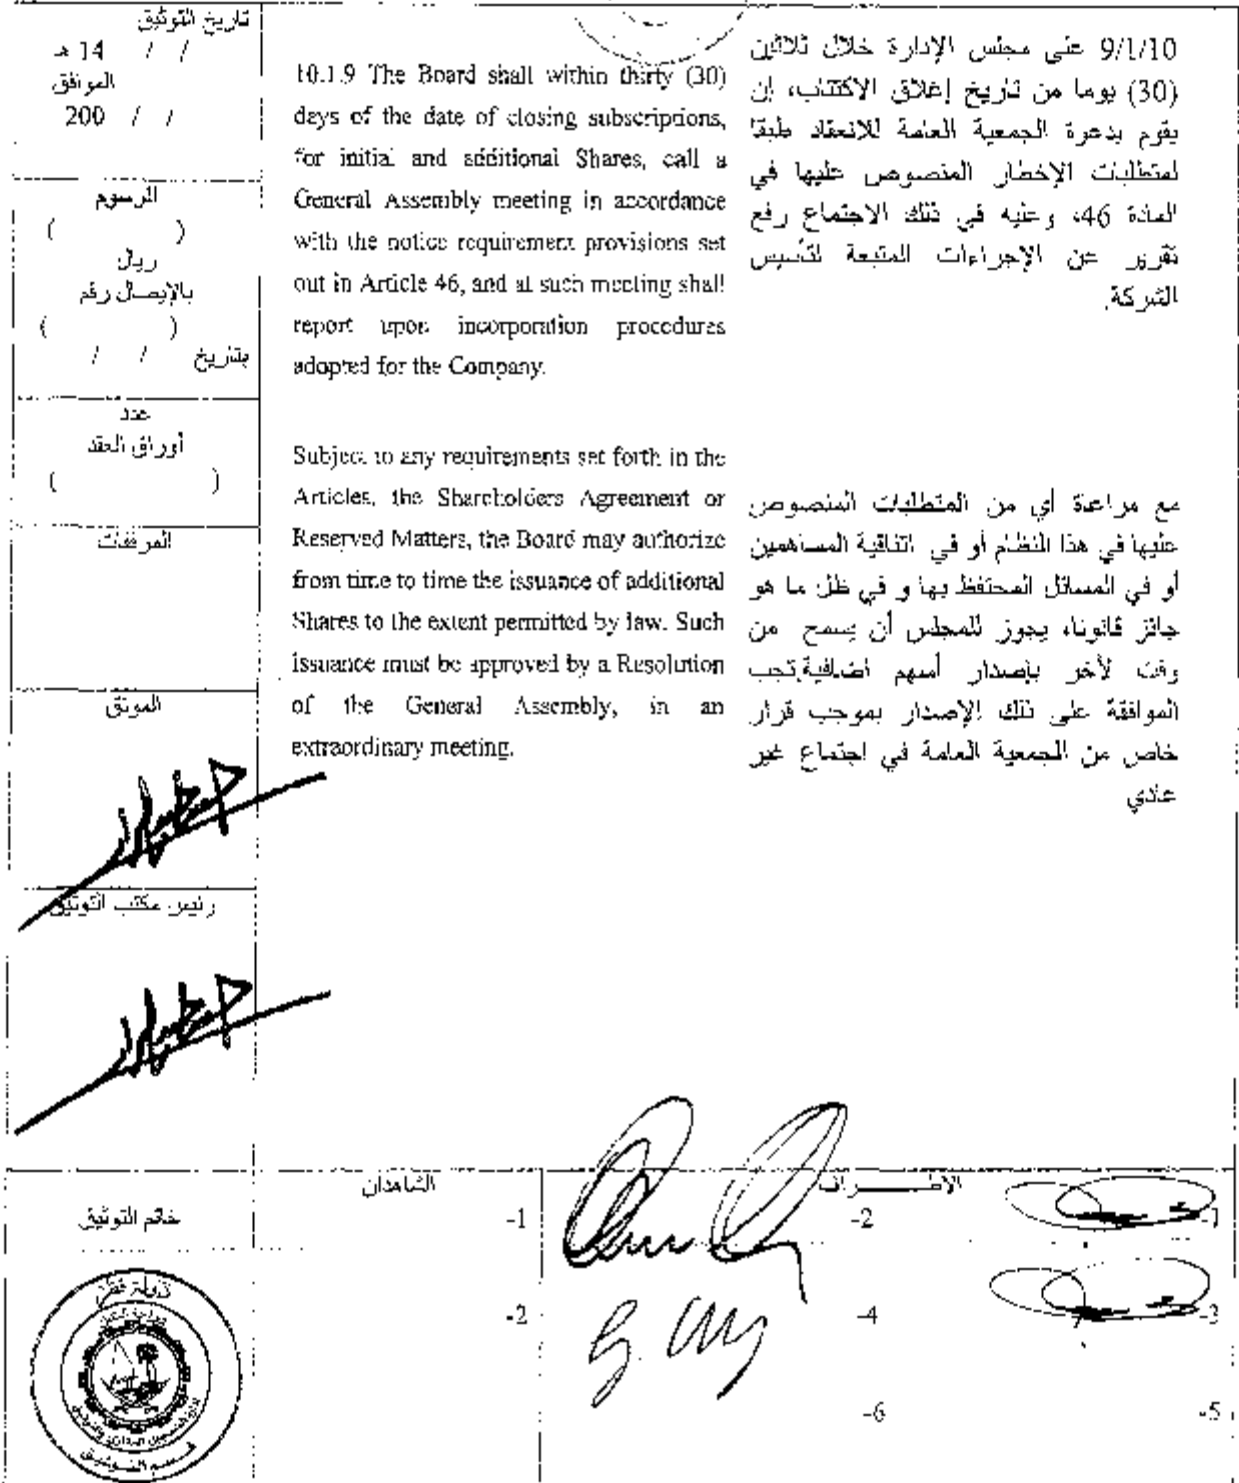 تاريخ التوثيق
/ / 14 هـ
الموافق
/ / 200
الرسوم
( )
ريال
بالإيصال رقم
( )
بتاريخ / /
عدد
أوراق العقد
( )
المرفقات
الموثق
رئيس مكتب التوثيق
10.1.9 The Board shall within thirty (30)
days of the date of closing subscriptions,
for initial and additional Shares, call a
General Assembly meeting in accordance
with the notice requirement provisions set
out in Article 46, and at such meeting shall
report upon incorporation procedures
adopted for the Company.
Subject to any requirements set forth in the
Articles, the Shareholders Agreement or
Reserved Matters, the Board may authorize
from time to time the issuance of additional
Shares to the extent permitted by law. Such
issuance must be approved by a Resolution
of the General Assembly, in an
extraordinary meeting.
9/1/10 على مجلس الإدارة خلال ثلاثين
(30) يوما من تاريخ إغلاق الاكتتاب، إن
يقوم بدعوة الجمعية العامة للانعقاد طبقا
لمتطلبات الإخطار المنصوص عليها في
المادة 46، وعليه في ذلك الاجتماع رفع
تقرير عن الإجراءات المتبعة لتأسيس
الشركة.
مع مراعاة أي من المتطلبات المنصوص
عليها في هذا النظام أو في اتفاقية المساهمين
أو في المسائل المحتفظ بها و في ظل ما هو
جائز قانونا، يجوز للمجلس أن يسمح من
وقت لأخر بإصدار أسهم اضافية.تجب
الموافقة على ذلك الإصدار بموجب قرار
خاص من الجمعية العامة في اجتماع غير
عادي
خاتم التوثيق
الشاهدان
-1
-2
الاطــــراف
-1
-2
-3
-4
-5
-6
دولة قطر
قسم التوثيق